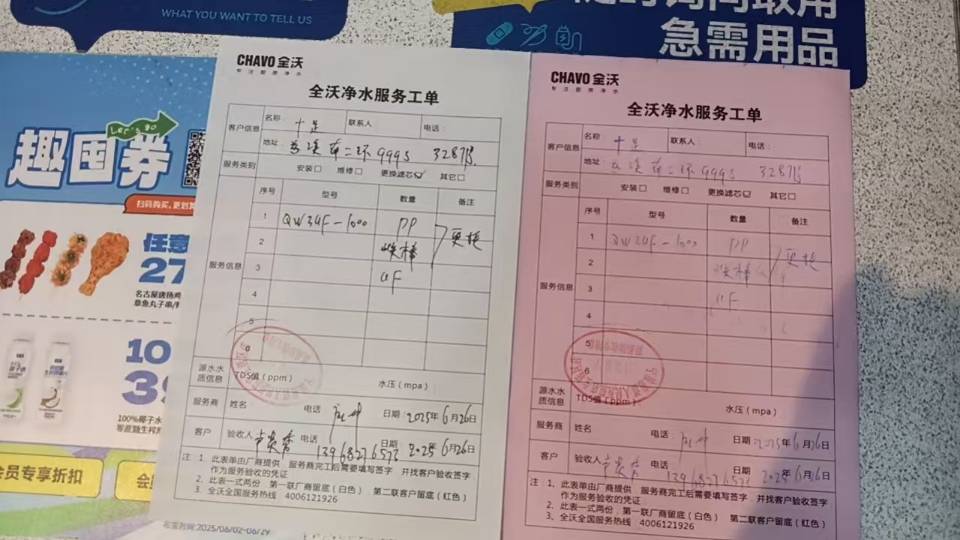 WHAT YOU WANT TO TELL US
急需用品
Let's go
趣囤券
扫码购买
任意
27
10
39
100%椰子水
会员专享折扣
CHAVO 全沃
专注厨房净水
全沃净水服务工单
客户信息
名称
十足
联系人
电话:
地址:
二环 999号 328档
服务类别
安装□ 维修□ 更换滤芯☑ 其它□
序号 型号 数量 备注
服务信息
1 QW34F-1000 PP
2 碳棒 更换
3 UF
4
5
6
源水水质信息
TDS值(ppm) 水压(mpa)
服务商 姓名 电话 日期:2025年6月26日
客户 验收人 电话 13968276573 日期 2025年6月26日
注 1、此表单由厂商提供 服务商完工后需要填写签字 并找客户验收签字
作为服务验收的凭证
2、此表一式两份,第一联厂商留底(白色) 第二联客户留底(红色)
3、全沃全国服务热线 4006121926
CHAVO 全沃
专注厨房净水
全沃净水服务工单
客户信息
名称
十足
联系人
电话:
地址
二环 999号 328档
服务类别
安装□ 维修□ 更换滤芯☑ 其它□
序号 型号 数量 备注
服务信息
1 QW34F-1000 PP
2 碳棒 更换
3 UF
4
5
6
源水水质信息
TDS值(ppm) 水压(mpa)
服务商 姓名 电话 日期:2025年6月26日
客户 验收人 电话 日期 2025年6月26日
注 1、此表单由厂商提供 服务商完工后需要填写签字 并找客户验收签字
作为服务验收的凭证
2、此表一式两份,第一联厂商留底(白色) 第二联客户留底(红色)
3、全沃全国服务热线 4006121926